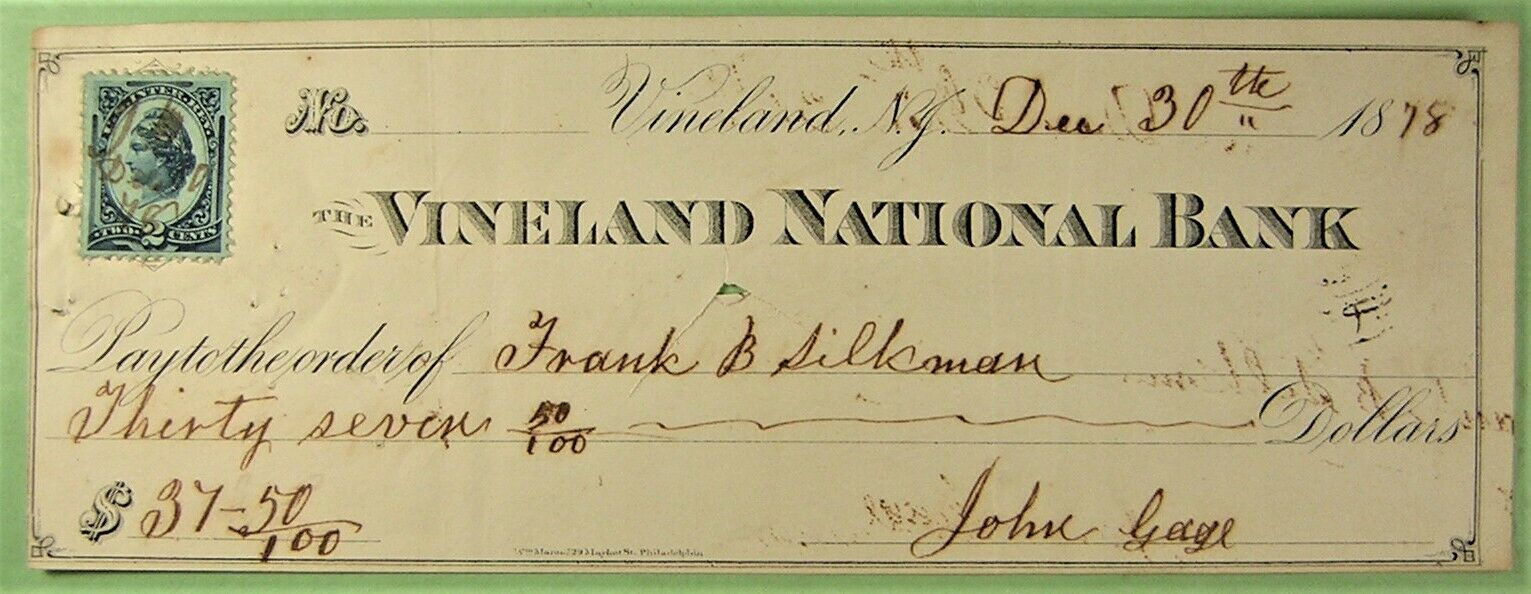 U.S. INTER. REV.
TWO 2 CENTS
No. Vineland, N.J. Dec 30th 1878
THE VINELAND NATIONAL BANK
Pay to the order of Frank B Silkman
Thirty seven 50/100 Dollars
$ 37-50/100 John Gage
Market St. Philadelphia